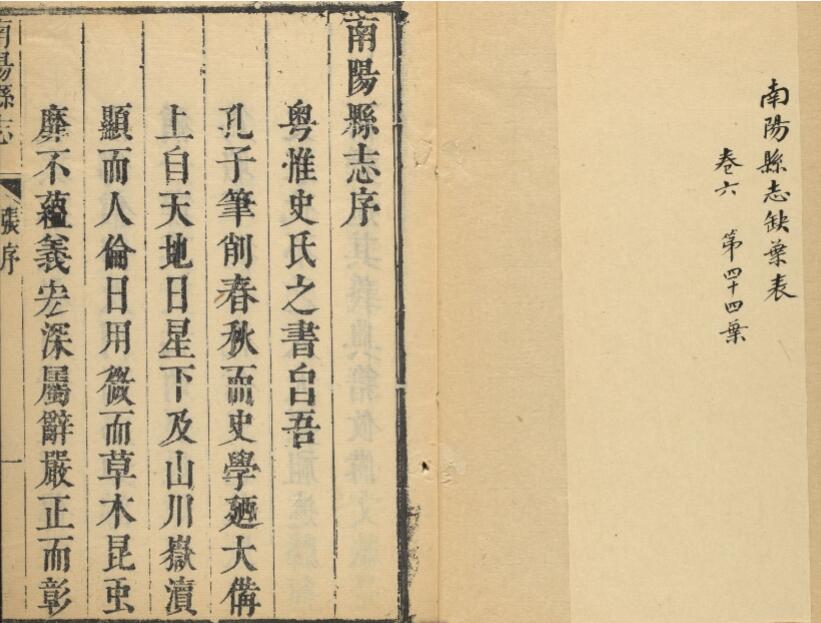 南陽縣志缺葉表
卷六　第四十四葉
南陽縣志序
粤惟史氏之書自吾
孔子筆削春秋而史學廼大備
上自天地日星下及山川嶽瀆
顯而人倫日用微而草木昆虫
靡不蘊義宏深屬辭嚴正而彰
南陽縣志
張序
一